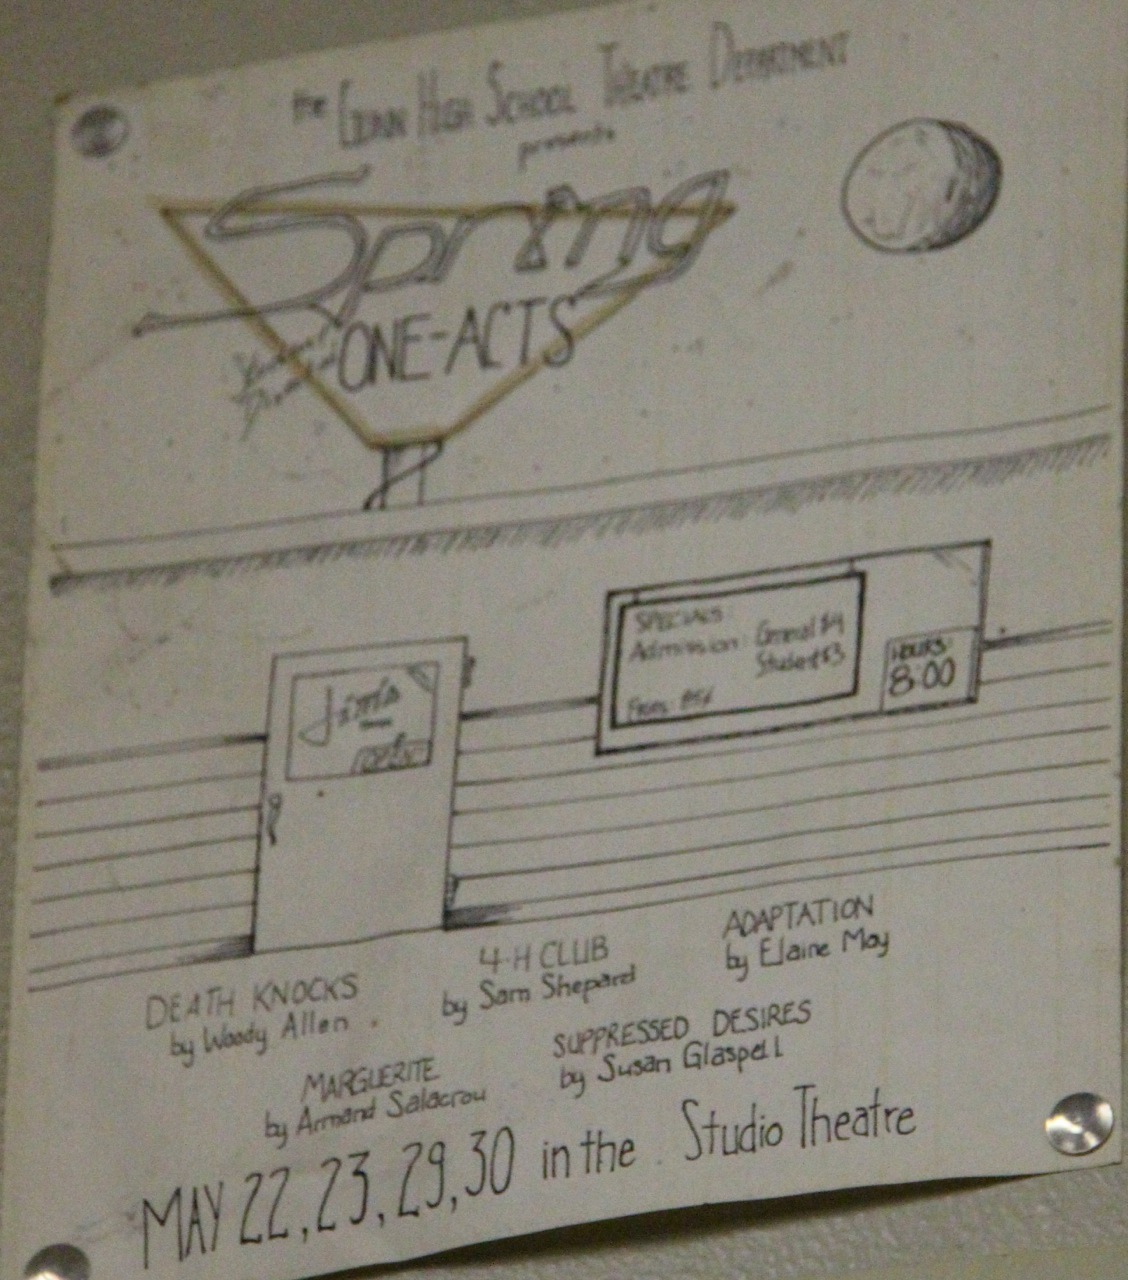 the GUNN HIGH SCHOOL THEATRE DEPARTMENT
presents
Spring
ONE-ACTS
SPECIALS:
Admission: General $4
Student $3
HOURS:
8:00
ADAPTATION
by Elaine May
4-H CLUB
by Sam Shepard
DEATH KNOCKS
by Woody Allen
SUPPRESSED DESIRES
by Susan Glaspell
MARGUERITE
by Armand Salacrou
MAY 22, 23, 29, 30 in the Studio Theatre